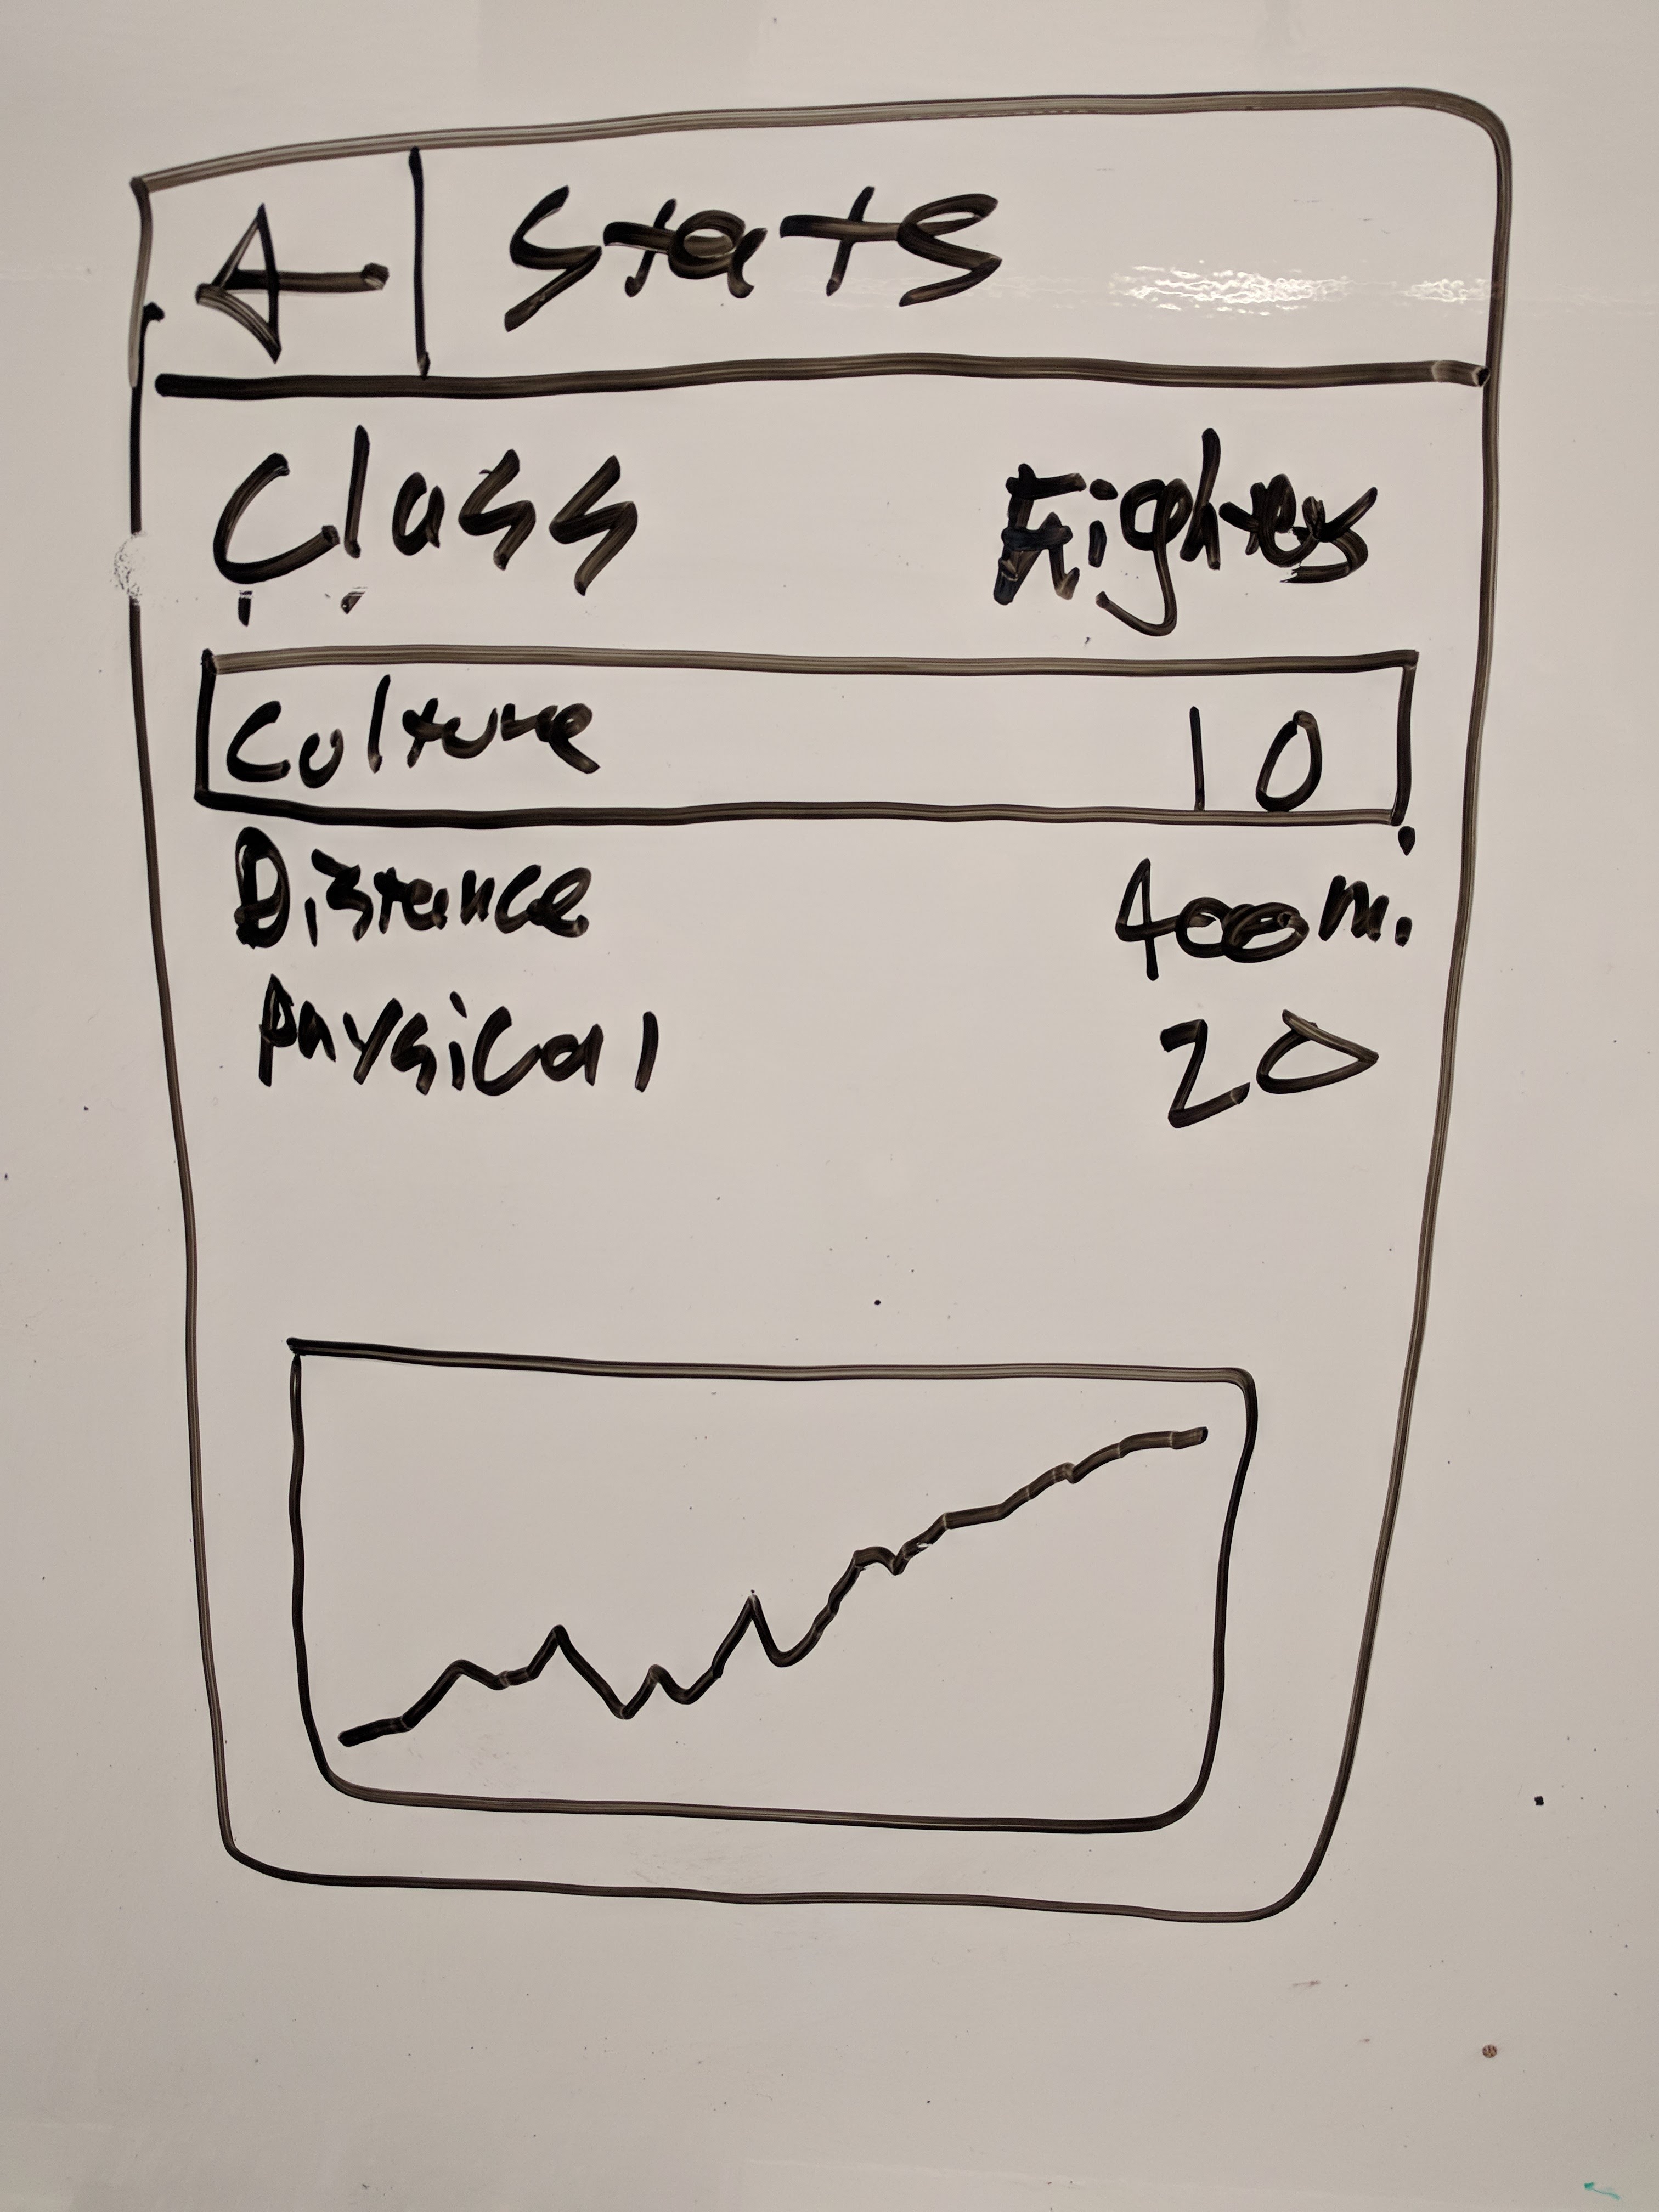 Stats
Class Fighter
Culture 10
Distance 400 m.
Physical 20